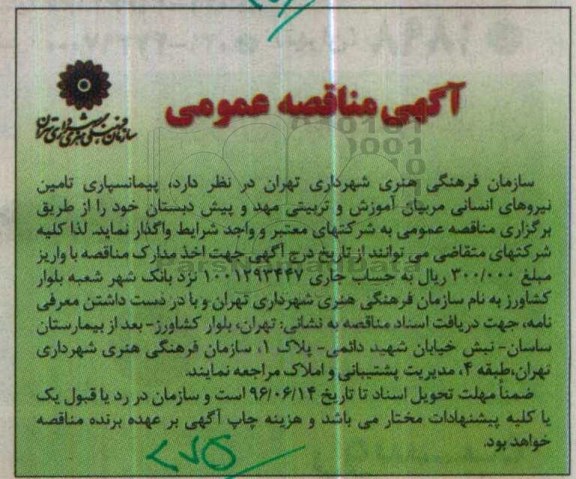 آگهی مناقصه عمومی
سازمان فرهنگی هنری شهرداری تهران
سازمان فرهنگی هنری شهرداری تهران در نظر دارد، پیمانسپاری تامین
نیروهای انسانی مربیان آموزش و تربیتی مهد و پیش دبستان خود را از طریق
برگزاری مناقصه عمومی به شرکتهای معتبر و واجد شرایط واگذار نماید. لذا کلیه
شرکتهای متقاضی می توانند از تاریخ درج آگهی جهت اخذ مدارک مناقصه با واریز
مبلغ ۳۰۰/۰۰۰ ریال به حساب جاری ۱۰۰۱۲۹۳۴۴۷ نزد بانک شهر شعبه بلوار
کشاورز به نام سازمان فرهنگی هنری شهرداری تهران و با در دست داشتن معرفی
نامه، جهت دریافت اسناد مناقصه به نشانی: تهران، بلوار کشاورز- بعد از بیمارستان
ساسان- نبش خیابان شهید دائمی- پلاک ۱، سازمان فرهنگی هنری شهرداری
تهران،طبقه ۴، مدیریت پشتیبانی و املاک مراجعه نمایند.
ضمناً مهلت تحویل اسناد تا تاریخ ۹۶/۰۶/۱۴ است و سازمان در رد یا قبول یک
یا کلیه پیشنهادات مختار می باشد و هزینه چاپ آگهی بر عهده برنده مناقصه
خواهد بود.